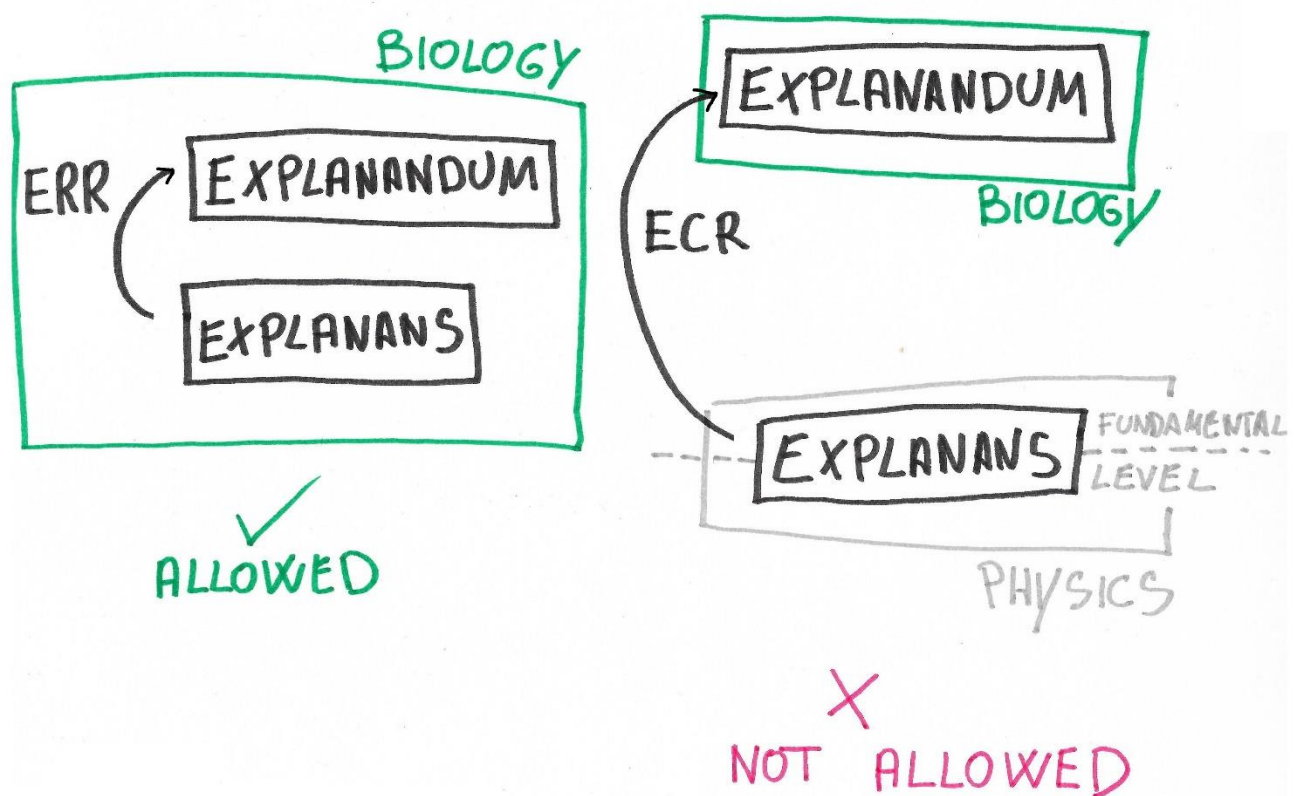 BIOLOGY
ERR
EXPLANANDUM
EXPLANANS
ALLOWED
EXPLANANDUM
BIOLOGY
ECR
EXPLANANS
FUNDAMENTAL
LEVEL
PHYSICS
NOT ALLOWED